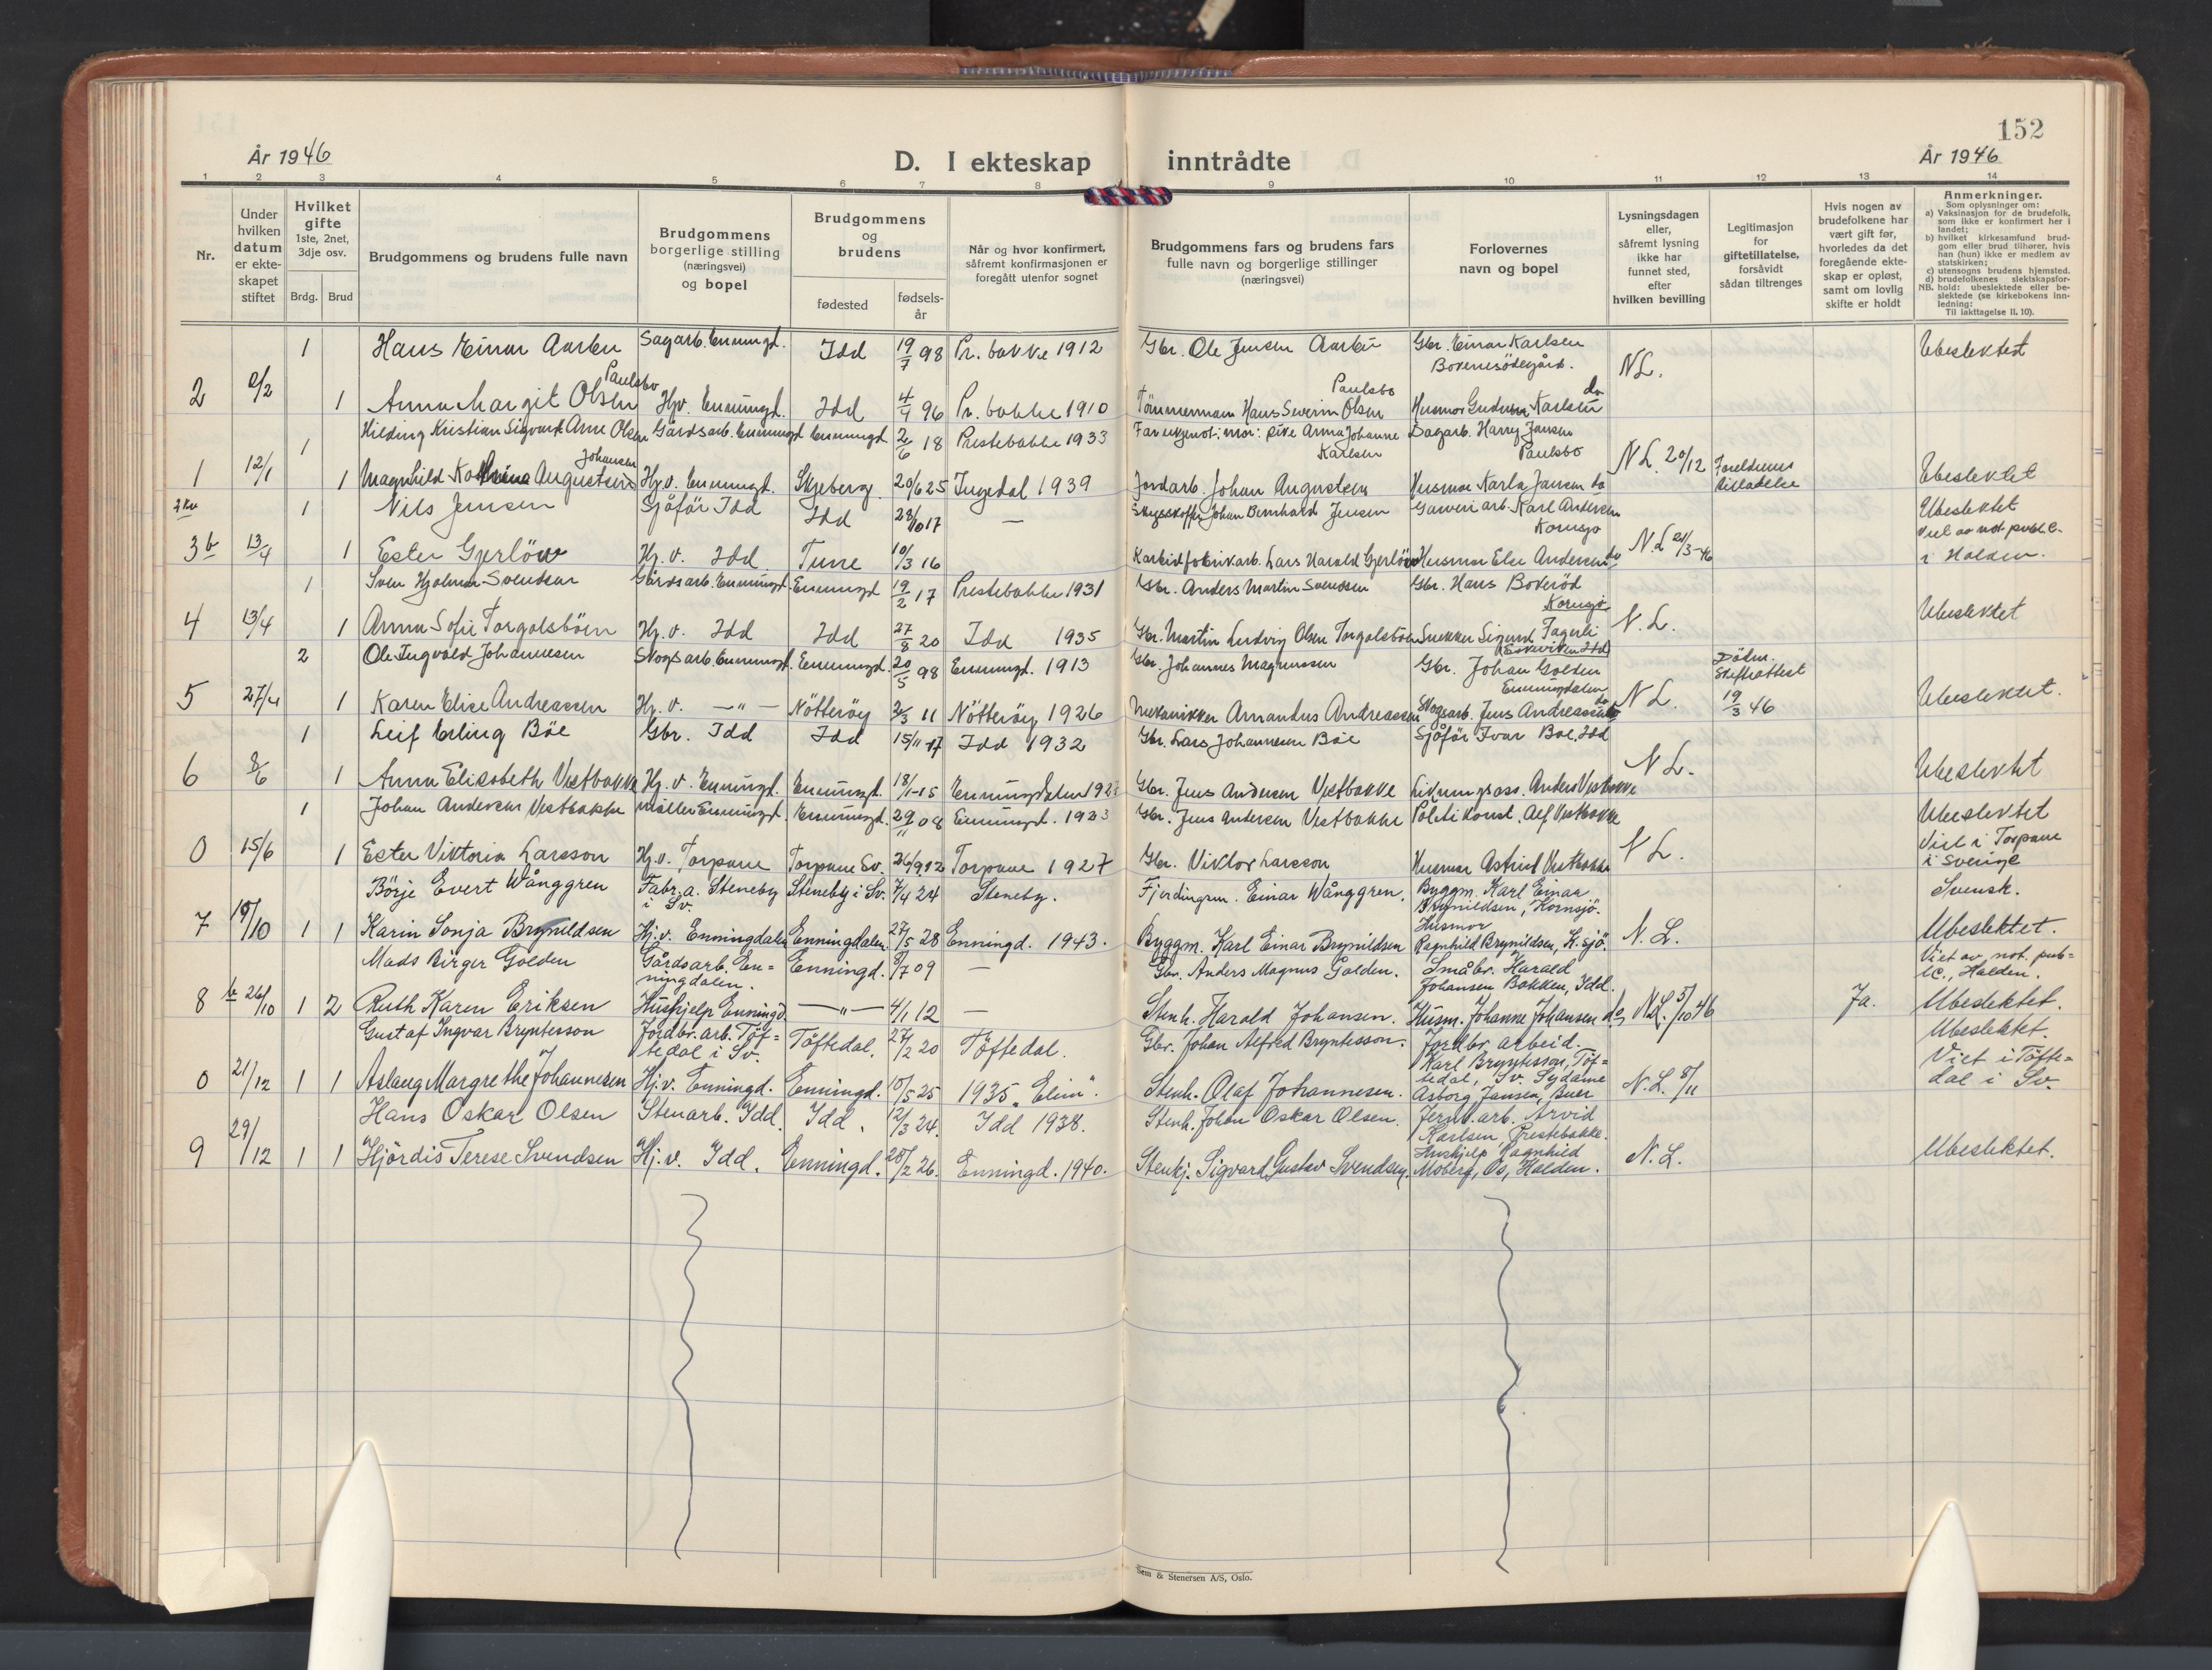 152
År 1946
D. I ekteskap inntrådte
År 1946
1 2 3 4 5 6 7 8 9 10 11 12 13 14
Nr.
Under hvilken datum er ekteskapet stiftet
Hvilket gifte
1ste, 2net, 3dje osv.
Brdg. Brud
Brudgommens og brudens fulle navn
Brudgommens borgerlige stilling (næringsvei) og bopel
Brudgommens og brudens
fødested
fødselsår
Når og hvor konfirmert, såfremt konfirmasjonen er foregått utenfor sognet
Brudgommens fars og brudens fars fulle navn og borgerlige stillinger (næringsvei)
Forlovernes navn og bopel
Lysningsdagen eller, såfremt lysning ikke har funnet sted, efter hvilken bevilling
Legitimasjon for giftetillatelse, forsåvidt sådan tiltrenges
Hvis nogen av brudefolkene har vært gift før, hvorledes da det foregående ekteskap er opløst, samt om lovlig skifte er holdt
Anmerkninger.
Som oplysninger om:
a) Vaksinasjon for de brudefolk, som ikke er konfirmert her i landet;
b) hvilket kirkesamfund brudgom eller brud tilhører, hvis han (hun) ikke er medlem av statskirken;
c) utensogns brudens hjemsted.
d) brudefolkenes slektskapsforhold: ubeslektede eller beslektede (se kirkebokens innledning:
NB.
Til iakttagelse II. 10).
1 Hans Einar Aarbu Sagarb. Enningd. Idd 19/7 98 Pr. bakke 1912 Gbr. Ole Jensen Aarbu Gbr. Einar Karlsen Ubeslektet
N L.
Paulsbo Paulsbo do
2 2/2 1 Anna Margit Olsen Hjv. Enningd. Idd 4/4 96 Pr. bakke 1910 Tömmermann Hans Severin Olsen Husmor Gudrun Karlsen
1 Hilding Kristian Sigvard Arne Olsen Gårdsarb. Enningd Enningd 2/6 18 Prestebakke 1933 Far ukjent; mor: pike Anna Johanne Karlsen Sagarb. Harry Jansen Paulsbo
Johansen N L. 20/12 Foreldrenes tillatelse
1 12/1 1 Magnhild Katrine Augustsen Hj.v. Enningd. Skjeberg 20/6 25 Ingedal 1939 Jordarb. Johan Augustsen Husmor Karla Jansen do Ubeslektet
1 Nils Jensen Sjåför Idd Idd 28/10 17 — Johan Bernhard Jensen Garveriarb. Karl Andersen Kornsjø Ubeslektet
Viet av not. publ.
3 b 13/4 1 Ester Gjerlöw Hj. v. Idd Tune 10/3 16 Karbidfabrikarb. Lars Harald Gjerlöw Husmor Else Andersen do N.L 21/3-46 i Halden.
1 Sven Hjalmar Svendsen Gårdsarb. Enningd. Enningd 19/2 17 Prestebakke 1931 Gbr. Anders Martin Svendsen Gbr. Hans Bokerød Kornsjø
4 13/4 1 Anna Sofie Torgalsböen Hj. v. Idd Idd 27/8 20 Idd 1935 Gbr. Martin Ludvig Olsen Torgalsböen Snekker Sigurd Fagerli N. L. Ubeslektet
2 Ole Ingvald Johannesen Skogsarb. Enningd. Enningd. 20/5 98 Enningd. 1913 Gbr. Johannes Magnussen Gbr. Johan Golden Enningdalen Skifteattest
5 27/4 1 Karen Elise Andreassen Hj. v. —"— Nötteröy 2/3 11 Nötteröy 1926 Mekanikker Amandus Andreassen Skogsarb. Jens Andreassen do N L. 19/3 46 Ubeslektet.
1 Leif Erling Böe Gbr. Idd Idd 15/11 17 Idd 1932 Gbr. Lars Johannesen Böe Sjåför Ivar Böe, Idd
6 8/6 1 Anna Elisabeth Vestbakke Hj. v. Enningd. Enningd. 18/1-15 Enningdalen Gbr. Jens Andersen Vestbakke Anders Vestbakke N L. Ubeslektet
1 Johan Andersen Vestbakke Møller Enningd. Enningd. 29/11 08 Enningd. 1923 Gbr. Jens Andersen Vestbakke Politikonst. Alf Vestbakke Ubeslektet
0 15/6 1 Ester Viktoria Larsson Hj.v. Torpane Torpane Sv. 26/9.12 Torpane 1927 Gbr. Viktor Larsson Husmor Astrid Vestbakke N L. Viet i Torpane i Sverige
Börje Evert Wånggren Fabr.a. Steneby i Sv. Steneby i Sv. 7/4 24 Steneby. Fjerdingsm. Einar Wånggren. Byggm. Karl Einar Brynildsen, Kornsjö. Svensk.
7 19/10 1 1 Karin Sonja Brynildsen Hj.v. Enningdalen Enningdalen 27/5 28 Enningd. 1943. Byggm. Karl Einar Brynildsen Husmor Ragnhild Brynildsen, K.sjö. N. L. Ubeslektet.
Mads Birger Golden Gårdsarb. Enningdalen. Enningd. 8/7 09 — Gbr. Anders Magnus Golden. Småbr. Harald Johansen Bakken, Idd. Viet av not. public., Halden.
8 b 26/10 1 2 Ruth Karen Eriksen Hushjelp Enningd. —"— 4/1 12 — Stenh. Harald Johansen. Husm. Johanne Johansen do, N.L. 5/10 46 Ja. Ubeslektet.
Gustaf Ingvar Bryntesson Jordbr. arb. Töftedal i Sv. Töftedal. 27/2 20 Töftedal. Gbr. Johan Alfred Bryntesson. Jordbr. arbeid. Karl Bryntesson, Töftedal, Sv. Sydame Ubeslektet.
0 21/12 1 1 Aslaug Margrethe Johannesen Hj.v. Enningd. Enningd. 10/5 25 1935 „Elim". Stenh. Olaf Johannesen. Asborg Jansen, Buer N. L. 8/11 Viet i Töftedal i Sv.
Hans Oskar Olsen Stenarb. Idd. Idd. 12/3 24. Idd 1938. Stenh. Johan Oskar Olsen. Jernb. arb. Arvid Karlsen, Prestebakke.
9 29/12 1 1 Hjördis Terese Svendsen Hj. v. Idd. Enningd. 28/2 26. Enningd. 1940. Stenhj. Sigvard Gustav Svendsen. Hushjelp Ragnhild Moberg, Os, Halden. N. L. Ubeslektet.
Sem & Stenersen A/S, Oslo.